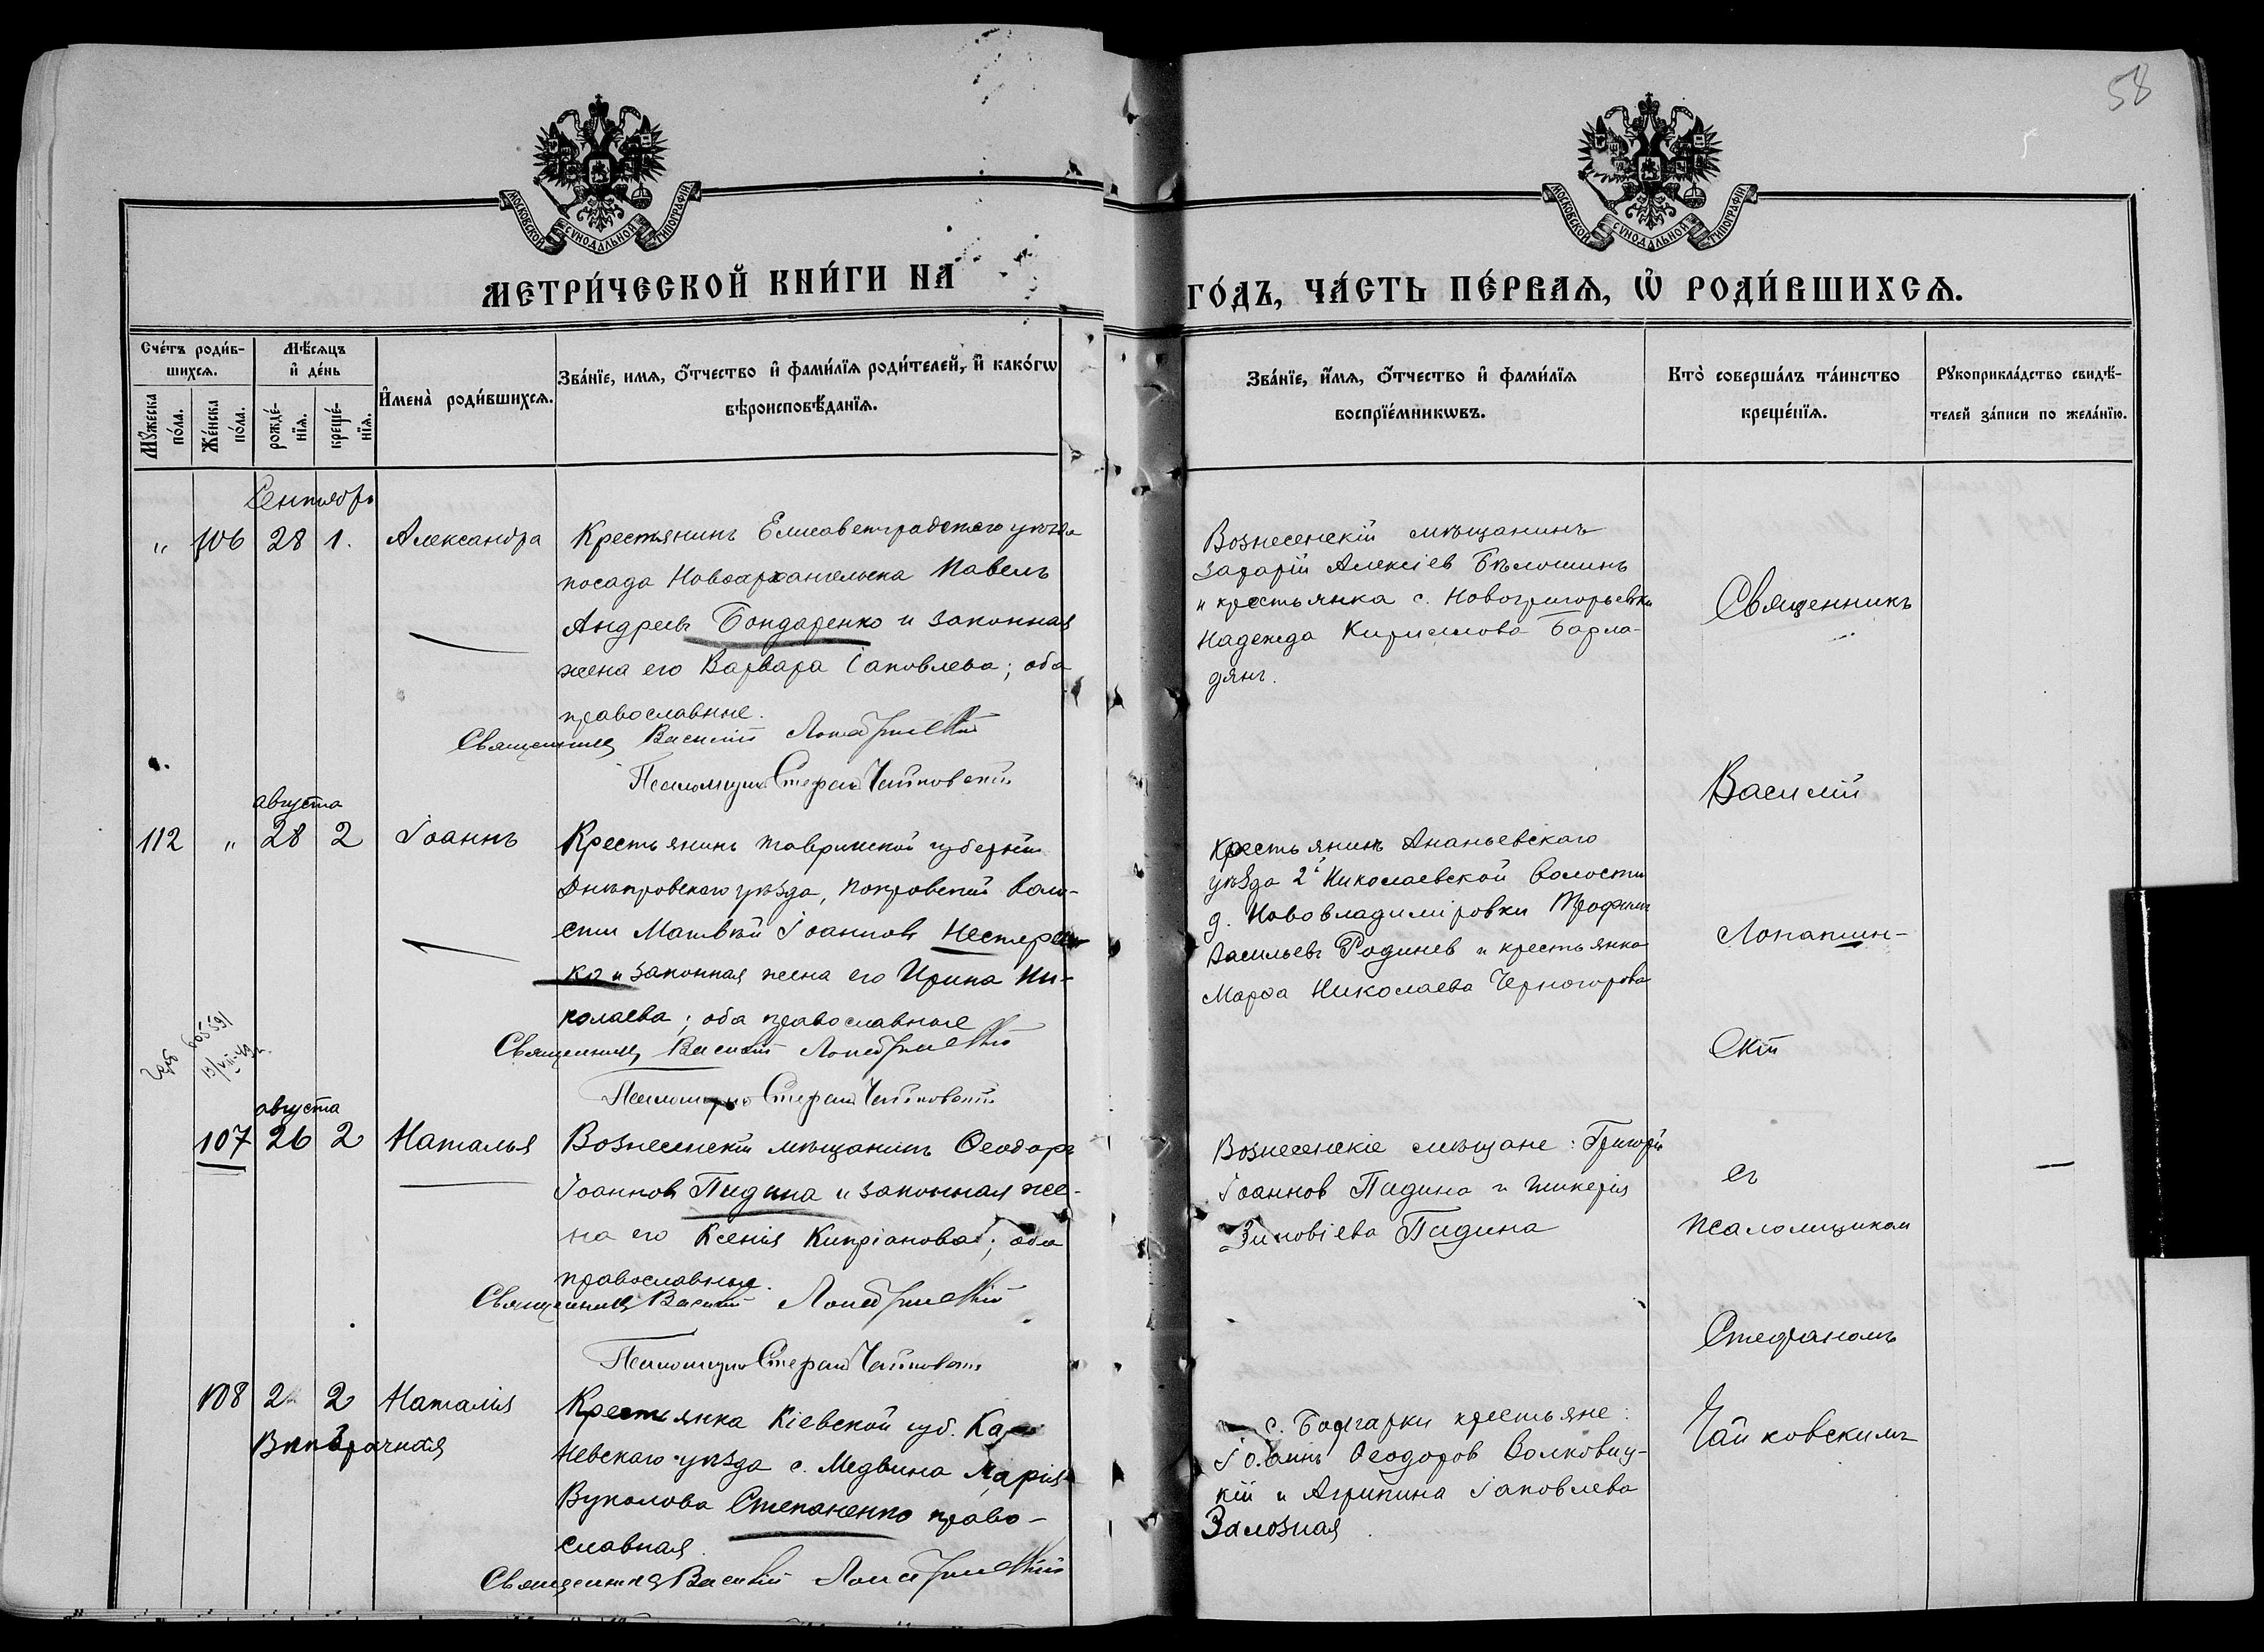 58
МОСКОВСКОЙ СУНОДАЛЬНОЙ ТИПОГРАФІИ
МОСКОВСКОЙ СУНОДАЛЬНОЙ ТИПОГРАФІИ
МЕТРИ́ЧЕСКОЙ КНИ́ГИ НА
ГО́ДЪ, ЧА́СТЬ ПЕ́РВАѦ, Ѡ҆ РОДИ́ВШИХСѦ.
Сче́тъ роди́в-
шихсѧ.
Мꙋ́жеска по́ла.
Же́нска по́ла.
Мѣ́сѧцъ
и҆ де́нь
рожде́-
нїѧ.
креще́-
нїѧ.
И҆мена̀ роди́вшихсѧ.
Зва́нїе, имѧ, ѻ҆́тчество и҆ фами́лїѧ роди́телей, и҆ како́гѡ
вѣроисповѣ́данїѧ.
Зва́нїе, и҆́мѧ, ѻ҆́тчество и҆ фами́лїѧ
воспрїе́мникѡвъ.
Кто̀ соверша́лъ та́инство
креще́нїѧ.
Рꙋкоприкла́дство свидѣ́-
телей за́писи по жела́нїю.
Сентябрь
" 106 28 1. Александра
Крестьянинъ Елисаветградскаго уѣзда
посада Новоархангельска Павелъ
Андреевъ Бондаренко и законная
жена его Варвара Іаковлева; оба
православные.
Священникъ Василій Лопатинскій
Псаломщикъ Стефанъ Чайковскій
Вознесенскій мѣщанинъ
Захарій Алексіев Бѣлошинъ
и крестьянка с. Новогригорьевки
Надежда Кириллова Барла-
дянъ.
Священникъ
Василій
Лопатин-
скій
съ
псаломщиком
Стефаномъ
Чайковскимъ
августа
112 " 28 2 Іоаннъ
Крестьянинъ Таврической губерніи
Днѣпровскаго уѣзда, Покровской воло-
сти Матвѣй Іоанновъ Нестерен-
ко и законная жена его Ирина Ни-
колаева; оба православные
Священникъ Василій Лопатинскій
Псаломщикъ Стефанъ Чайковскій
Крестьянинъ Ананьевскаго
уѣзда 2й Николаевской волости
д. Нововладиміровки Трофимъ
Васильевъ Родинев и крестьянка
Марѳа Николаева Черногорова
августа
107 26 2 Наталья
Вознесенскій мѣщанинъ Ѳеодоръ
Іоаннов Пидина и законная же-
на его Ксенія Кипріанова; оба
православные.
Священникъ Василій Лопатинскій
Псаломщикъ Стефанъ Чайковскій
Вознесенскіе мѣщане: Григорій
Іоаннов Пидина и Гликерія
Зиновіева Пидина
108 2 2 Наталія
Внѣбрачная
Крестьянка Кіевской губ. Ка-
невскаго уѣзда с. Медвина Марія
Вуколова Степаненко право-
славная.
Священникъ Василій Лопатинскій
с. Болгарки крестьяне:
Іоаннъ Ѳеодоров Волковиц-
кій и Агрипина Іаковлева
Залозная